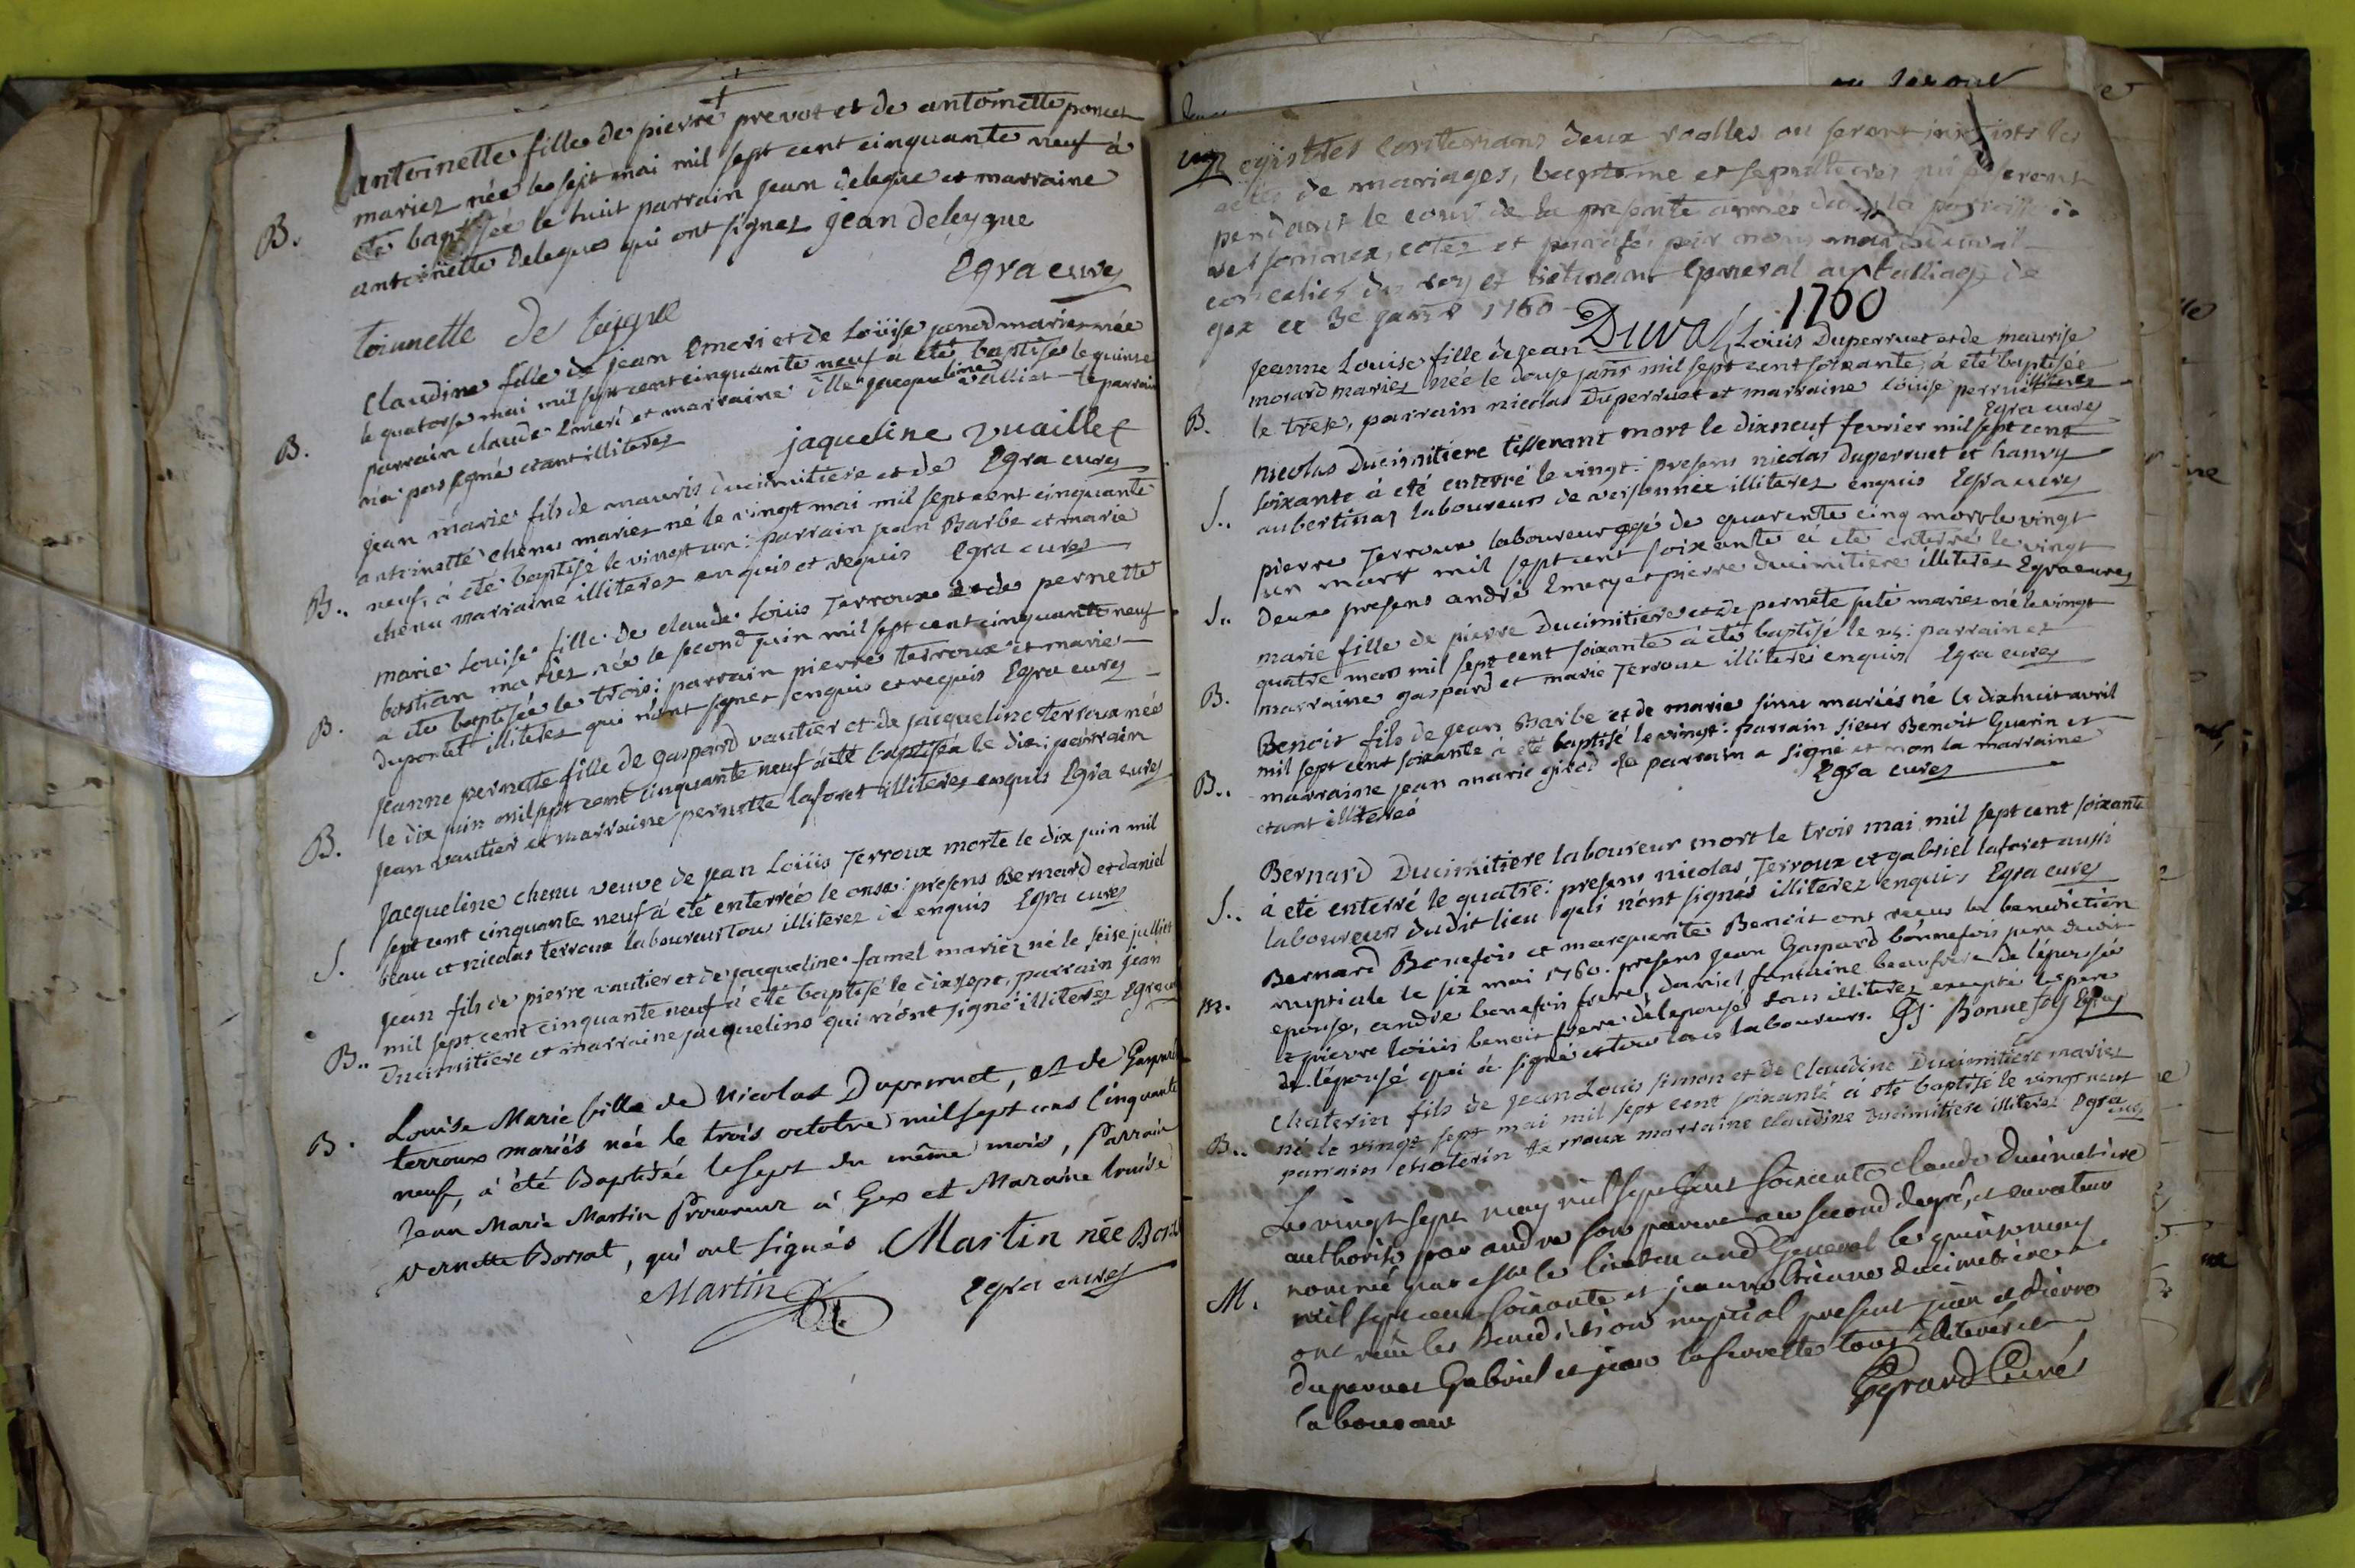 antoinette fille de pierre prevot et de antoinette poncet
mariez née le sept mai mil sept cent cinquante neuf à
B. été baptisée le huit parrain jean delegue et marraine
antoinette delegues qui ont signez jean deleygue
Egra curez
toinnette de laigue
Claudine fille de jean Emeri et de Loüise janod mariez née
le quatorse mai mil sept cent cinquante neuf a été baptisée le quinse
B. parrain claude Emeri et marraine dlle jacqueline valliet le parrain
n'a pas signé etant illiterez jaqueline vuaillet
Egra curez
jean marie fils de mauris ducimitiere et de
antoinette chenu mariez né le vingt mai mil sept cent cinquante
B.. neuf, à été baptisé le vingt un: parrain jean Barbe et marie
chenu marraine illiterez enquis et requis Egra curez
marie Louise fille de claude Loüis Terroux et de pernette
bastian mariez née le second juin mil sept cent cinquante neuf
B. a été baptisée le trois: parrain pierre terroux et marie
dupontet illiterez qui n'ont signez enquis et requis Egra curez
jeanne pernette fille de gaspard vautier et de jacqueline terroux née
le dix juin mil sept cent cinquante neuf à été baptisée le dix: parrain
B. jean vautier et marraine pernette laforet illiterez enquis Egra curez
Jacqueline chenu veuve de jean Loüis Terroux morte le dix juin mil
sept cent cinquante neuf à été enterrée le onse: presens Bernard et daniel
S. blau et nicolas terroux laboureurs tou illiterez de enquis Egra curez
jean fils de pierre vautier et de jacqueline famel mariez né le seise julliet
mil sept cent cinquante neuf à été baptisé le dixsept, parrain jean
B.. Ducimitiere et marraine jacqueline qui n'ont signé illiterez Egra cu
Louise Marie fille de Nicolas Duperruet, et de Gasparde
terroux mariés née le trois octobre mil sept cens Cinquante
B. neuf, à été Baptisée le sept du même mois, Parrain
Jean Marie Martin Procureur à Gex et Maraine Louise
pernette Borsat, qui ont signés Martin née Bors
Martin Egra curez
Registres Contenans deux roolles ou seront inscrits les
actes de mariages, baptême et sepultures qui se feront
pendant le cour de la presente année dans la paroisse de
versonnex, cotez et parafez par nous Duval
conseiller du roy et lietenant general au balliage de
gex ce 3e janvr 1760 Duval 1760
Jeanne Louise fille de jean Louis Duperruet et de maurise
morard mariez née le douse janr mil sept cent soixante, à été baptisée
B. le trese, parrain nicolas Duperruet et marraine loüise perruet illiterez
Egra curez
nicolas ducimitiere tisserant mort le dixneuf fevrier mil sept cent
soixante à été enterré le vingt: presens nicolas duperruet et hanry
S.. aubertinaz laboureurs de versonnex illiterez enquis Egra curez
pierre Terroux laboureur agé de quarente cinq mort le vingt
un mars mil sept cent soixante à été enterré le vingt
S.. deux presens andré Emery et pierre ducimitiere illiterez Egra curez
marie fille de pierre Ducimitiere et de pernete mariez né le vingt
quatre mars mil sept cent soixante à été baptisé le 25: parrain et
B. marraine gaspard et marie Terroux illiterés enquis Egra curez
Benoit fils de jean Barbe et de marie mariés né le dixhuit avril
mil sept cent soixante à été baptisé le vingt: parrain sieur Benoit Guerin et
B.. marraine jean marie girod le parrain a signé et non la marraine
etant illiterés Egra curez
Bernard Ducimitiere laboureur mort le trois mai mil sept cent soixante
à été enterré le quatre: presens nicolas Terroux et gabriel laforet aussi
S.. laboureurs dudit lieu qui n'ont signés illiterez enquis Egra curez
Bernard Bonefois et marguerite Benoit ont reçus la benediction
nuptiale le six mai 1760. presens jean Gaspard bonnefois pere dudit
M. epouse, andre bonefois frere, daniel fontaine beaufrere de l'épousée
et pierre loüis benoit frere de lepouse tous illiterez excepté le pere
de l'épousé qui à signé et tous laboureurs. JG. Bonnefoy Egra cuz
Chaterin fils de jean Louis simon et de Claudine Ducimitiere mariez
né le vingt sept mai mil sept cent soixante à été baptisé le vingt neuf
B.. parrain chaterin terroux marraine claudine ducimitiere illiterez Egra curez
Le vingt sept may mil sept Cent Soixante Claude Ducimetiere
authorisé par andre son parent au second degré, et curateur
nommé par le lieutenand General le quinze may
M. mil sept cent soixante et jeanne ducimetiere
ont reçu la benediction nuptial present jean et Pierre
duperuet Gabriel et jean laferrette tous illiterés et
laboureur Egrard Curés